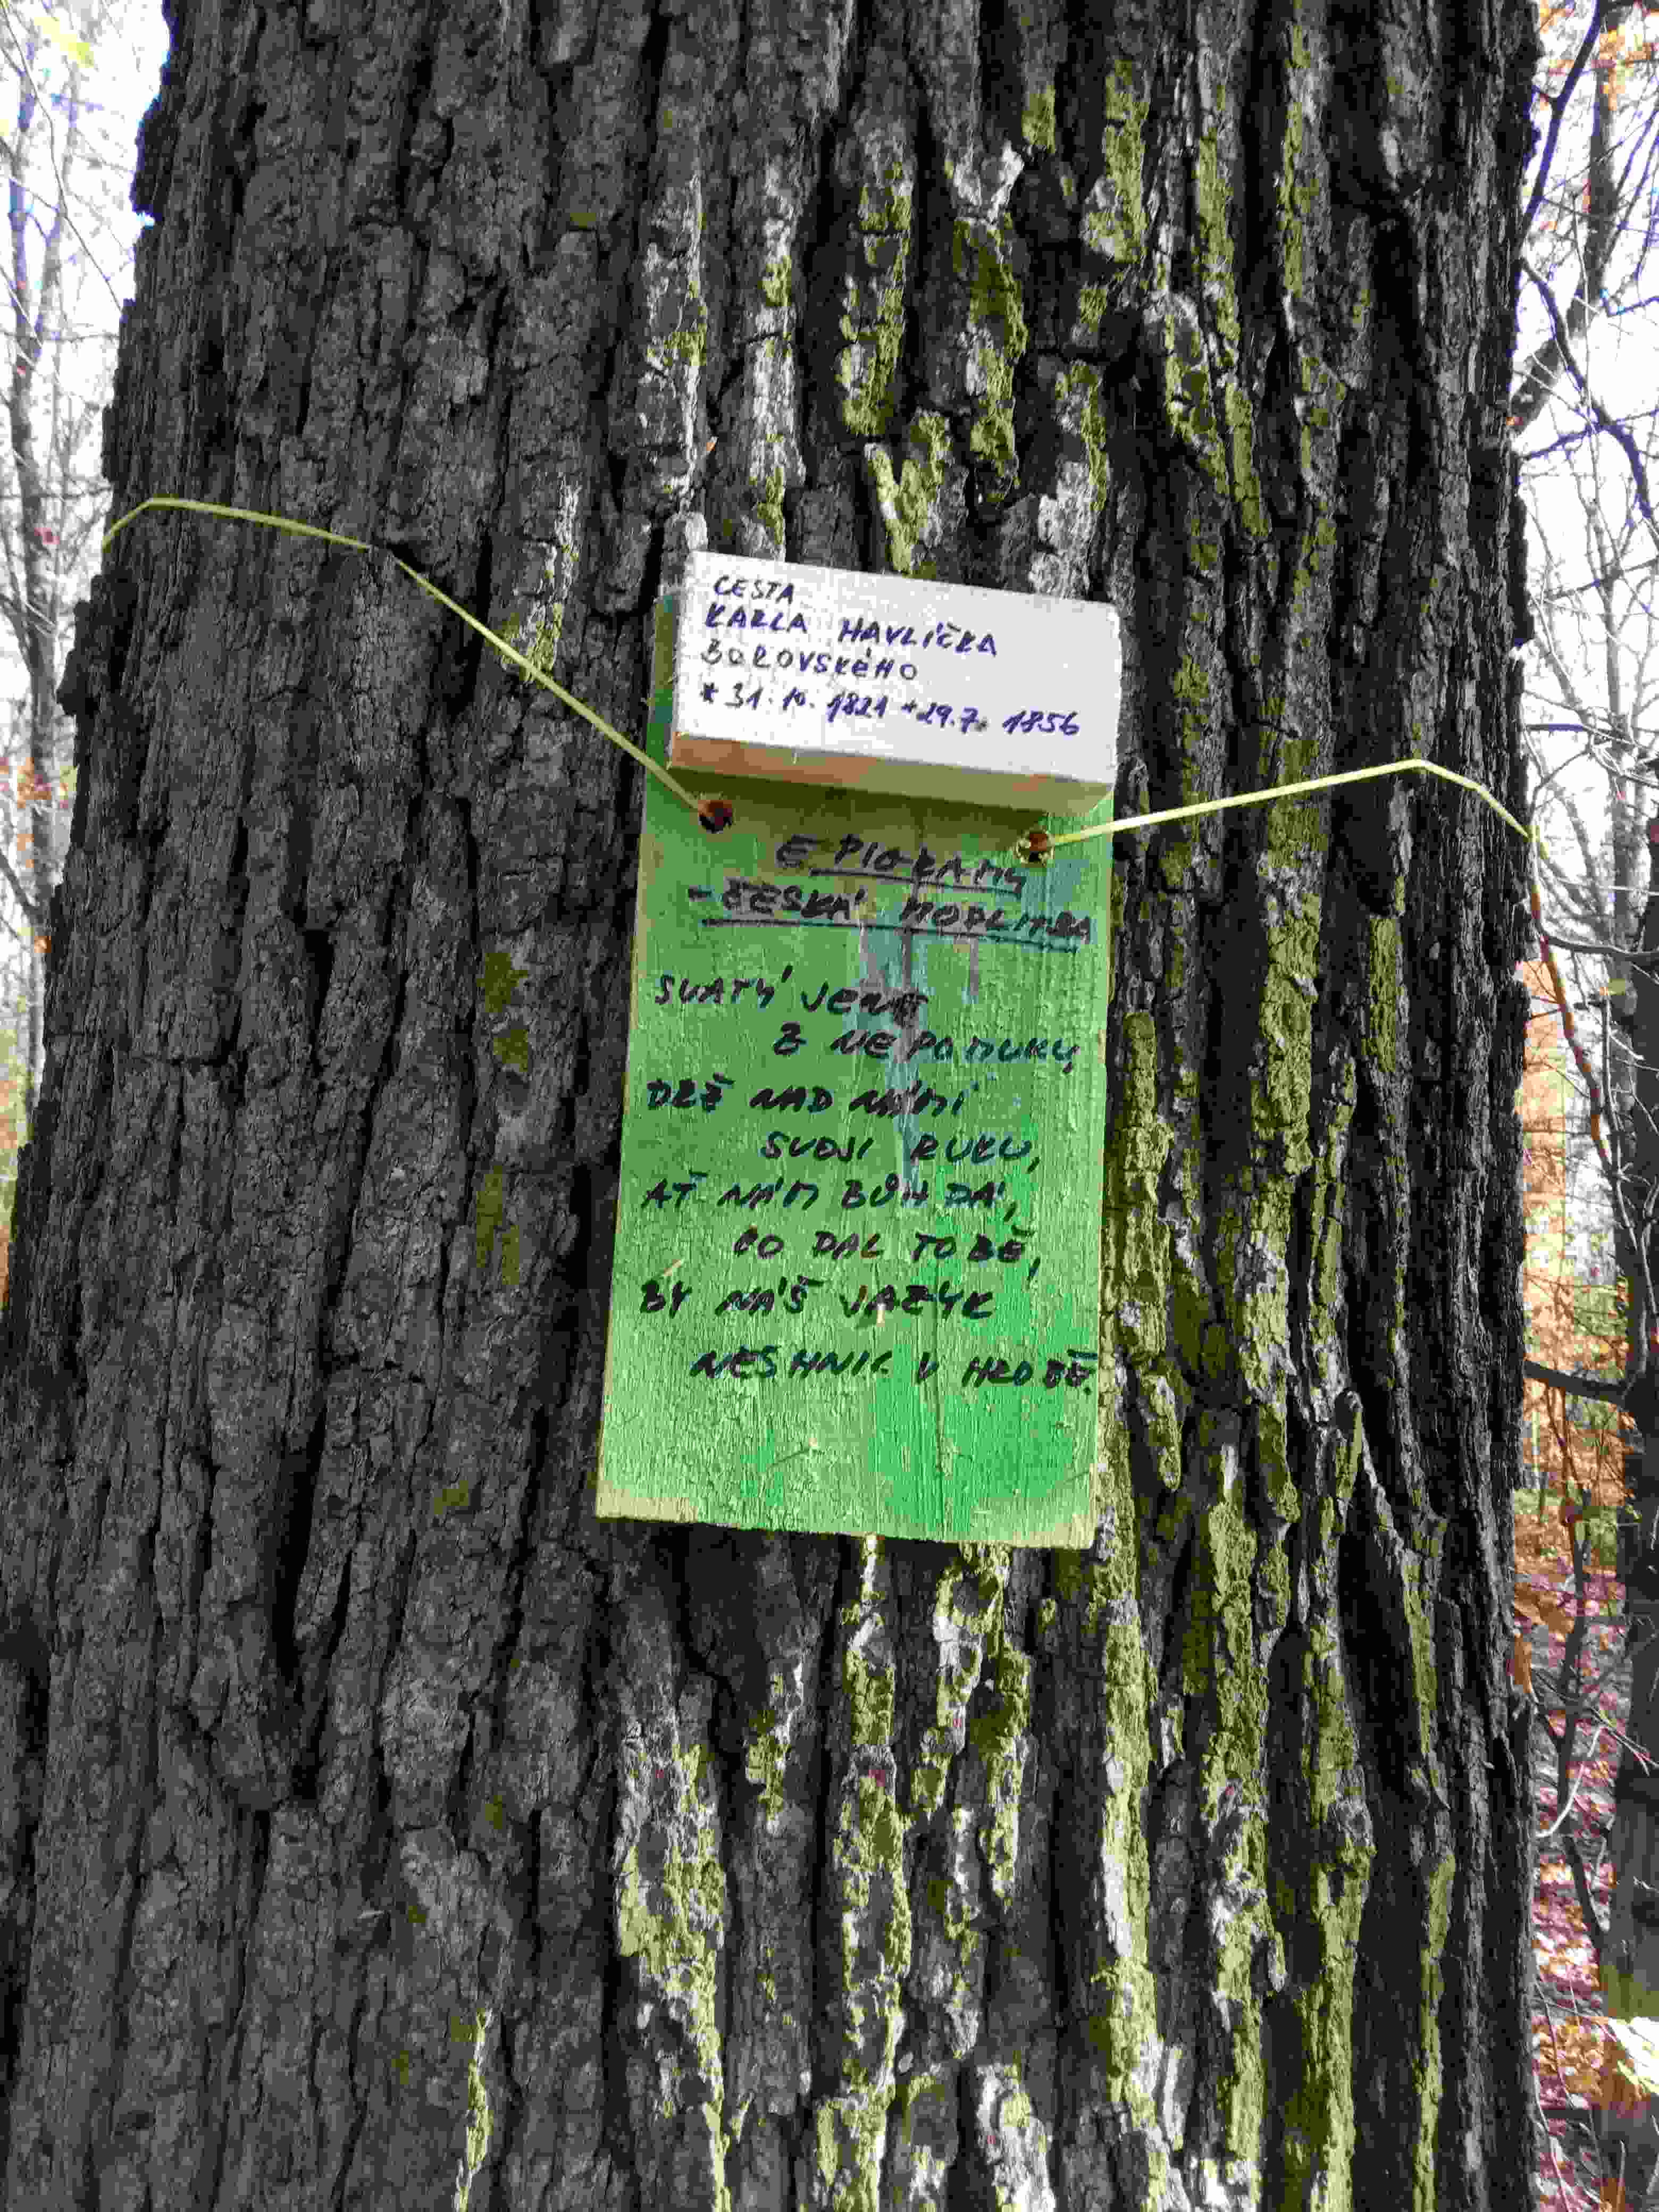 CESTA
KARLA HAVLÍČKA
BOROVSKÉHO
* 31. 10. 1821 +29.7. 1856
EPIGRAMY
- ČESKÁ MODLITBA
SVATÝ JENE
Z NEPOMUKU,
DRŽ NAD NÁMI
SVOJI RUKU,
AŤ NÁM BŮH DÁ,
CO DAL TOBĚ,
BY NÁŠ JAZYK
NESHNIL V HROBĚ.